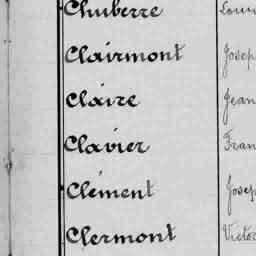 Chuberre
Clairmont Josep
Claire Jean
Clavier Fran
Clément Josep
Clermont Victo